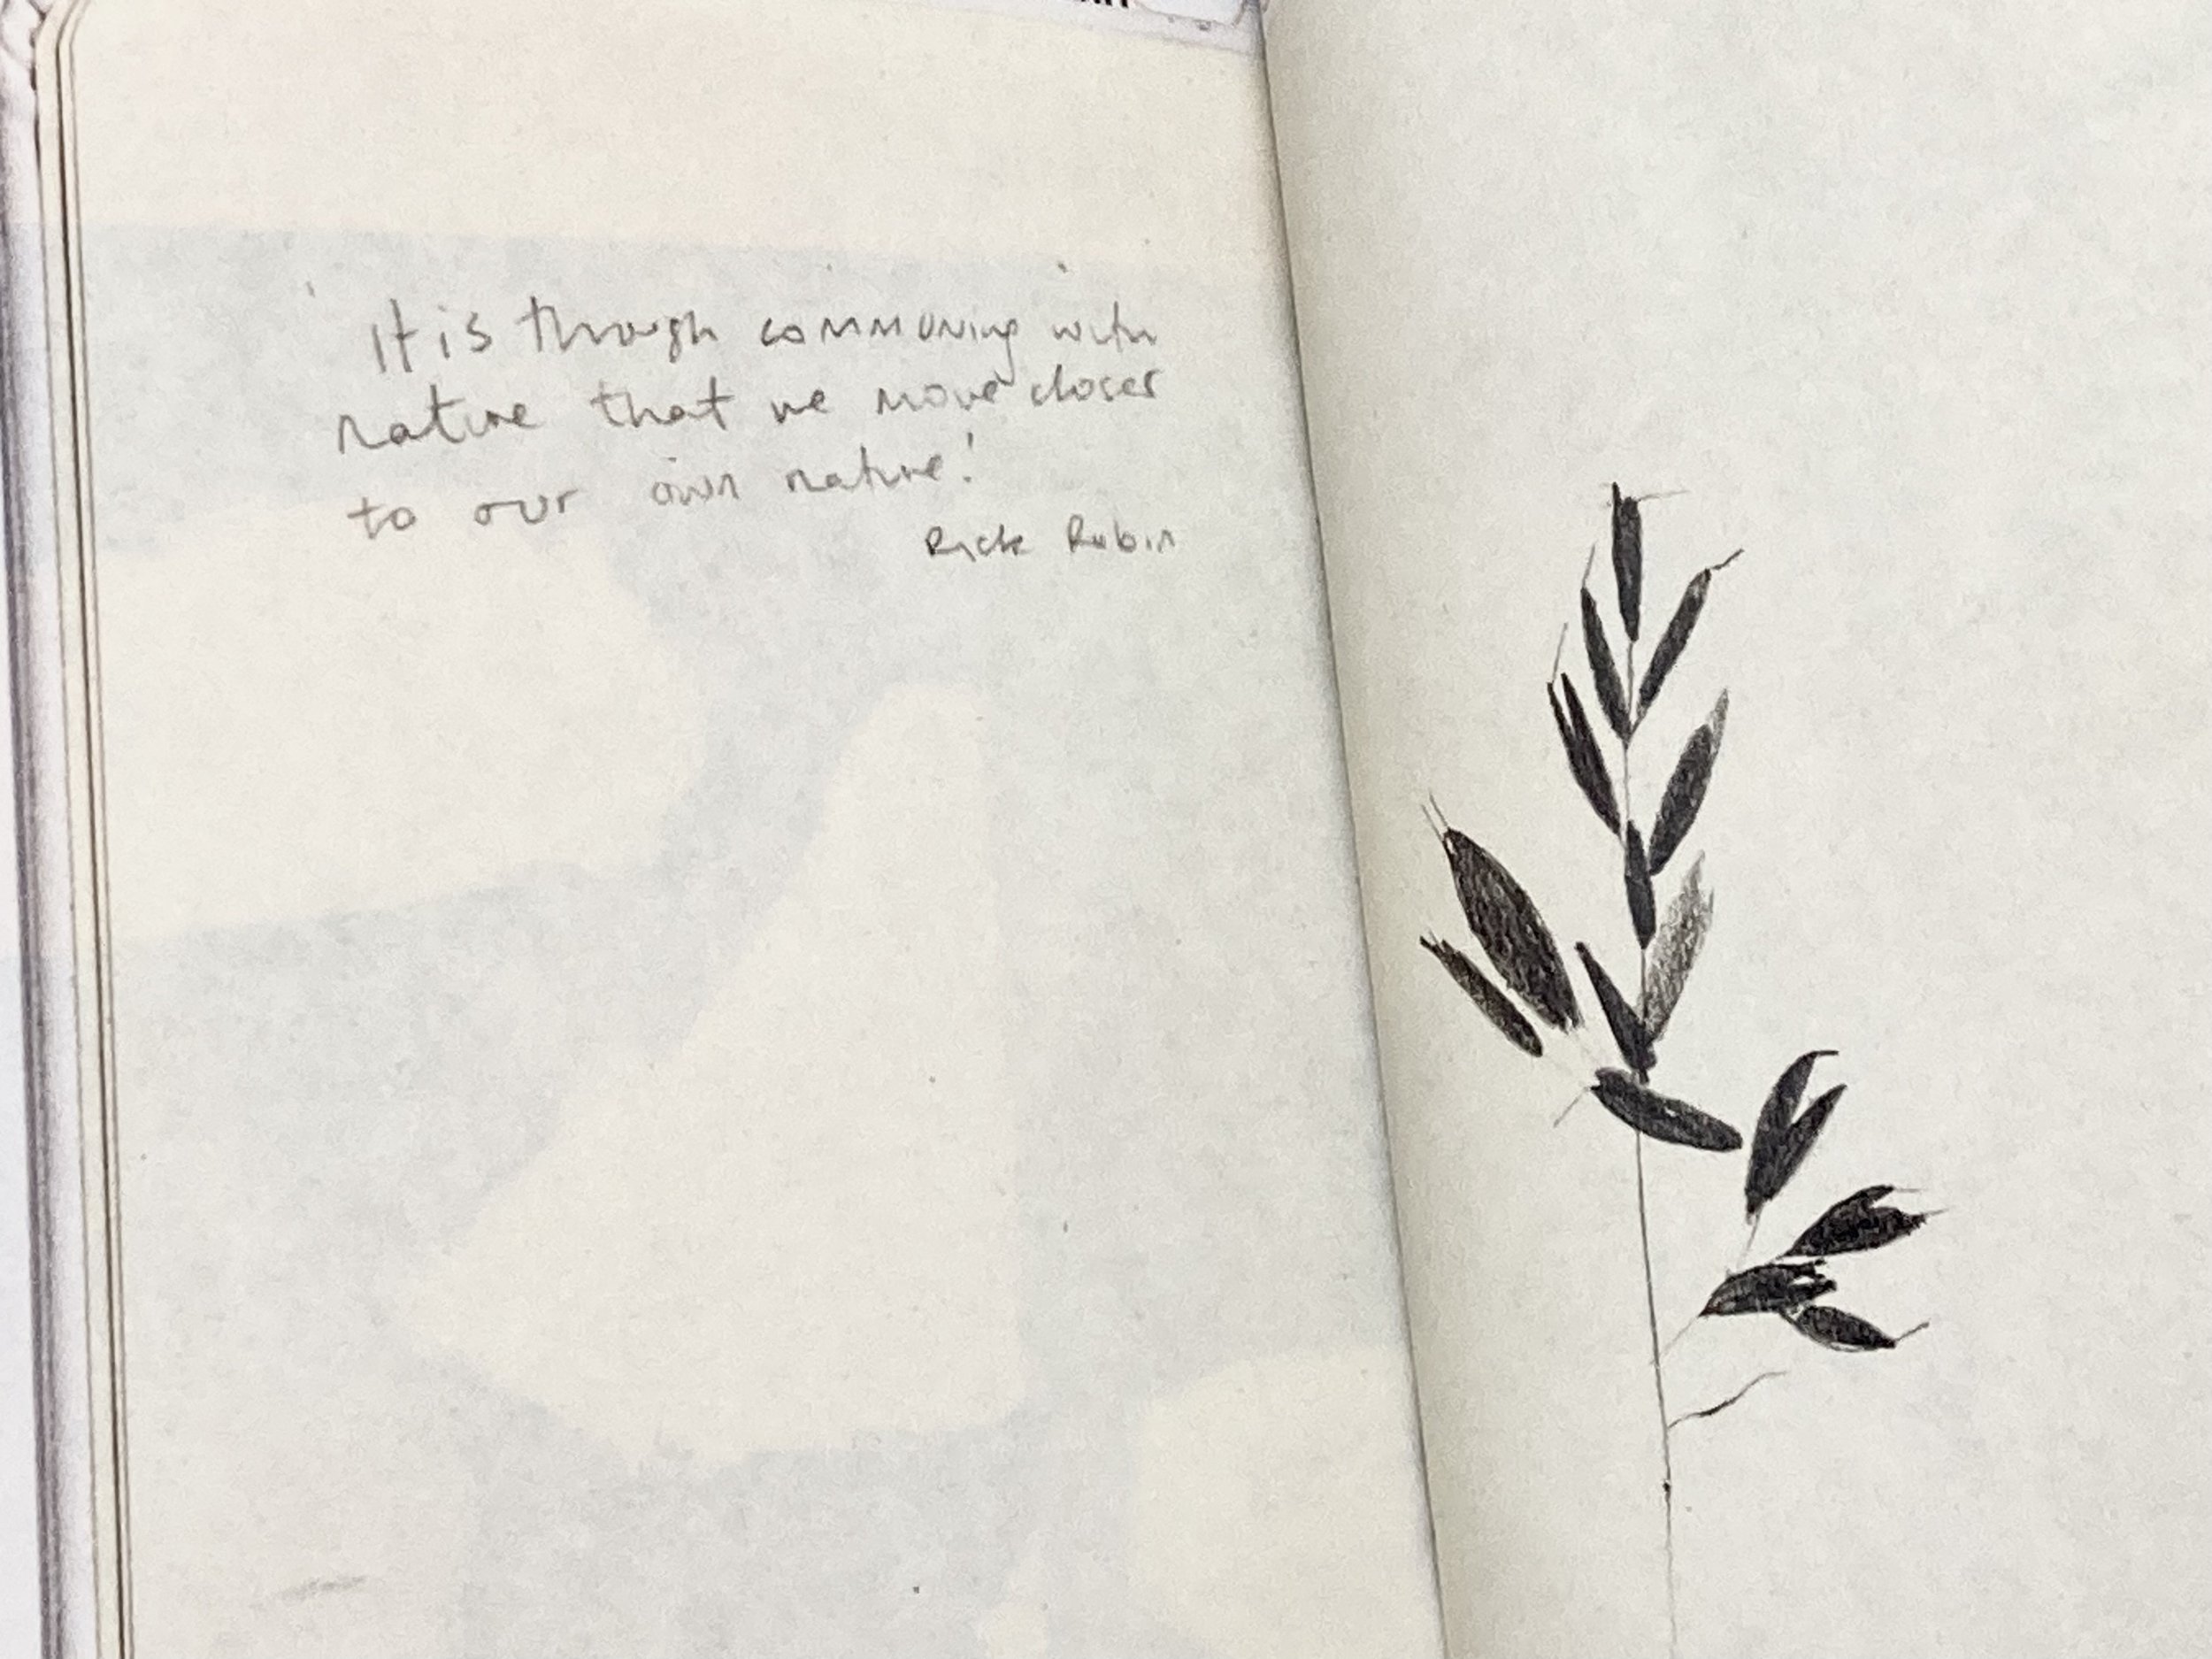 ' It is through communing with
nature that we move closer
to our own nature.'
Rick Rubin